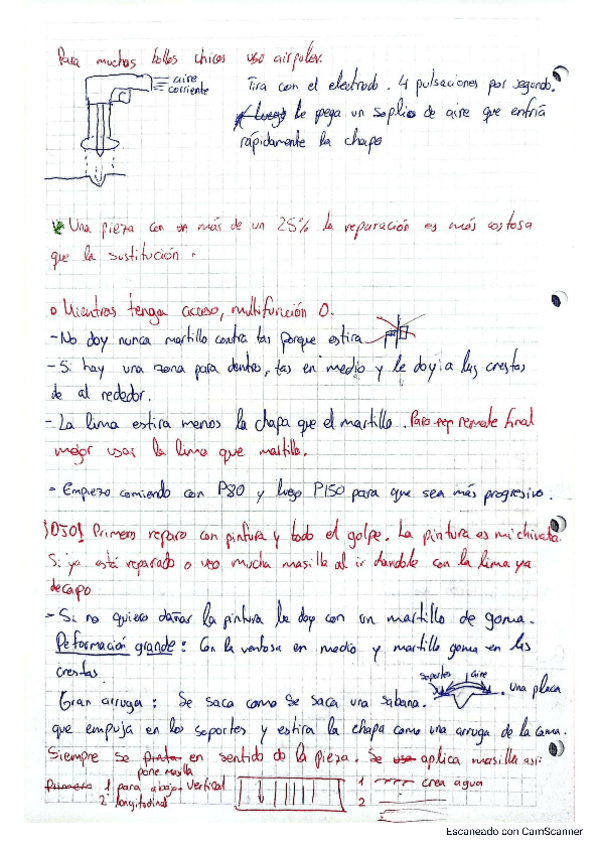 Para muchos bollos chicos uso airpuller.
aire
corriente
Tira con el electrodo. 4 pulsaciones por segundo.
luego le pega un soplio de aire que enfría
rápidamente la chapa
Una pieza con más de un 25% la reparación es más costosa
que la sustitución.
Mientras tenga acceso, multifunción 0.
- No doy nunca martillo contra tas porque estira
- Si hay una zona para dentro, tas en medio y le doy a las crestas
de al rededor.
- La lima estira menos la chapa que el martillo. Para remate final
mejor usar la lima que martillo.
- Empiezo comiendo con P80 y luego P150 para que sea más progresivo.
¡OJO! Primero reparo con pintura y todo el golpe. La pintura es mi chivata.
Si ya está reparado o veo mucha masilla al ir dandole con la lima ya
decapo
- Si no quiero dañar la pintura le doy con un martillo de goma.
Deformación grande: Con la ventosa en medio y martillo goma en las
crestas.
soportes aire
Gran arruga: Se saca como se saca una sabana. Una placa
que empuja en los soportes y estira la chapa como una arruga de la cama.
Siempre se pone masilla en sentido de la pieza. Se aplica masilla asi:
1º para abajo vertical
2º longitudinal
1 crea agua
2
Escaneado con CamScanner